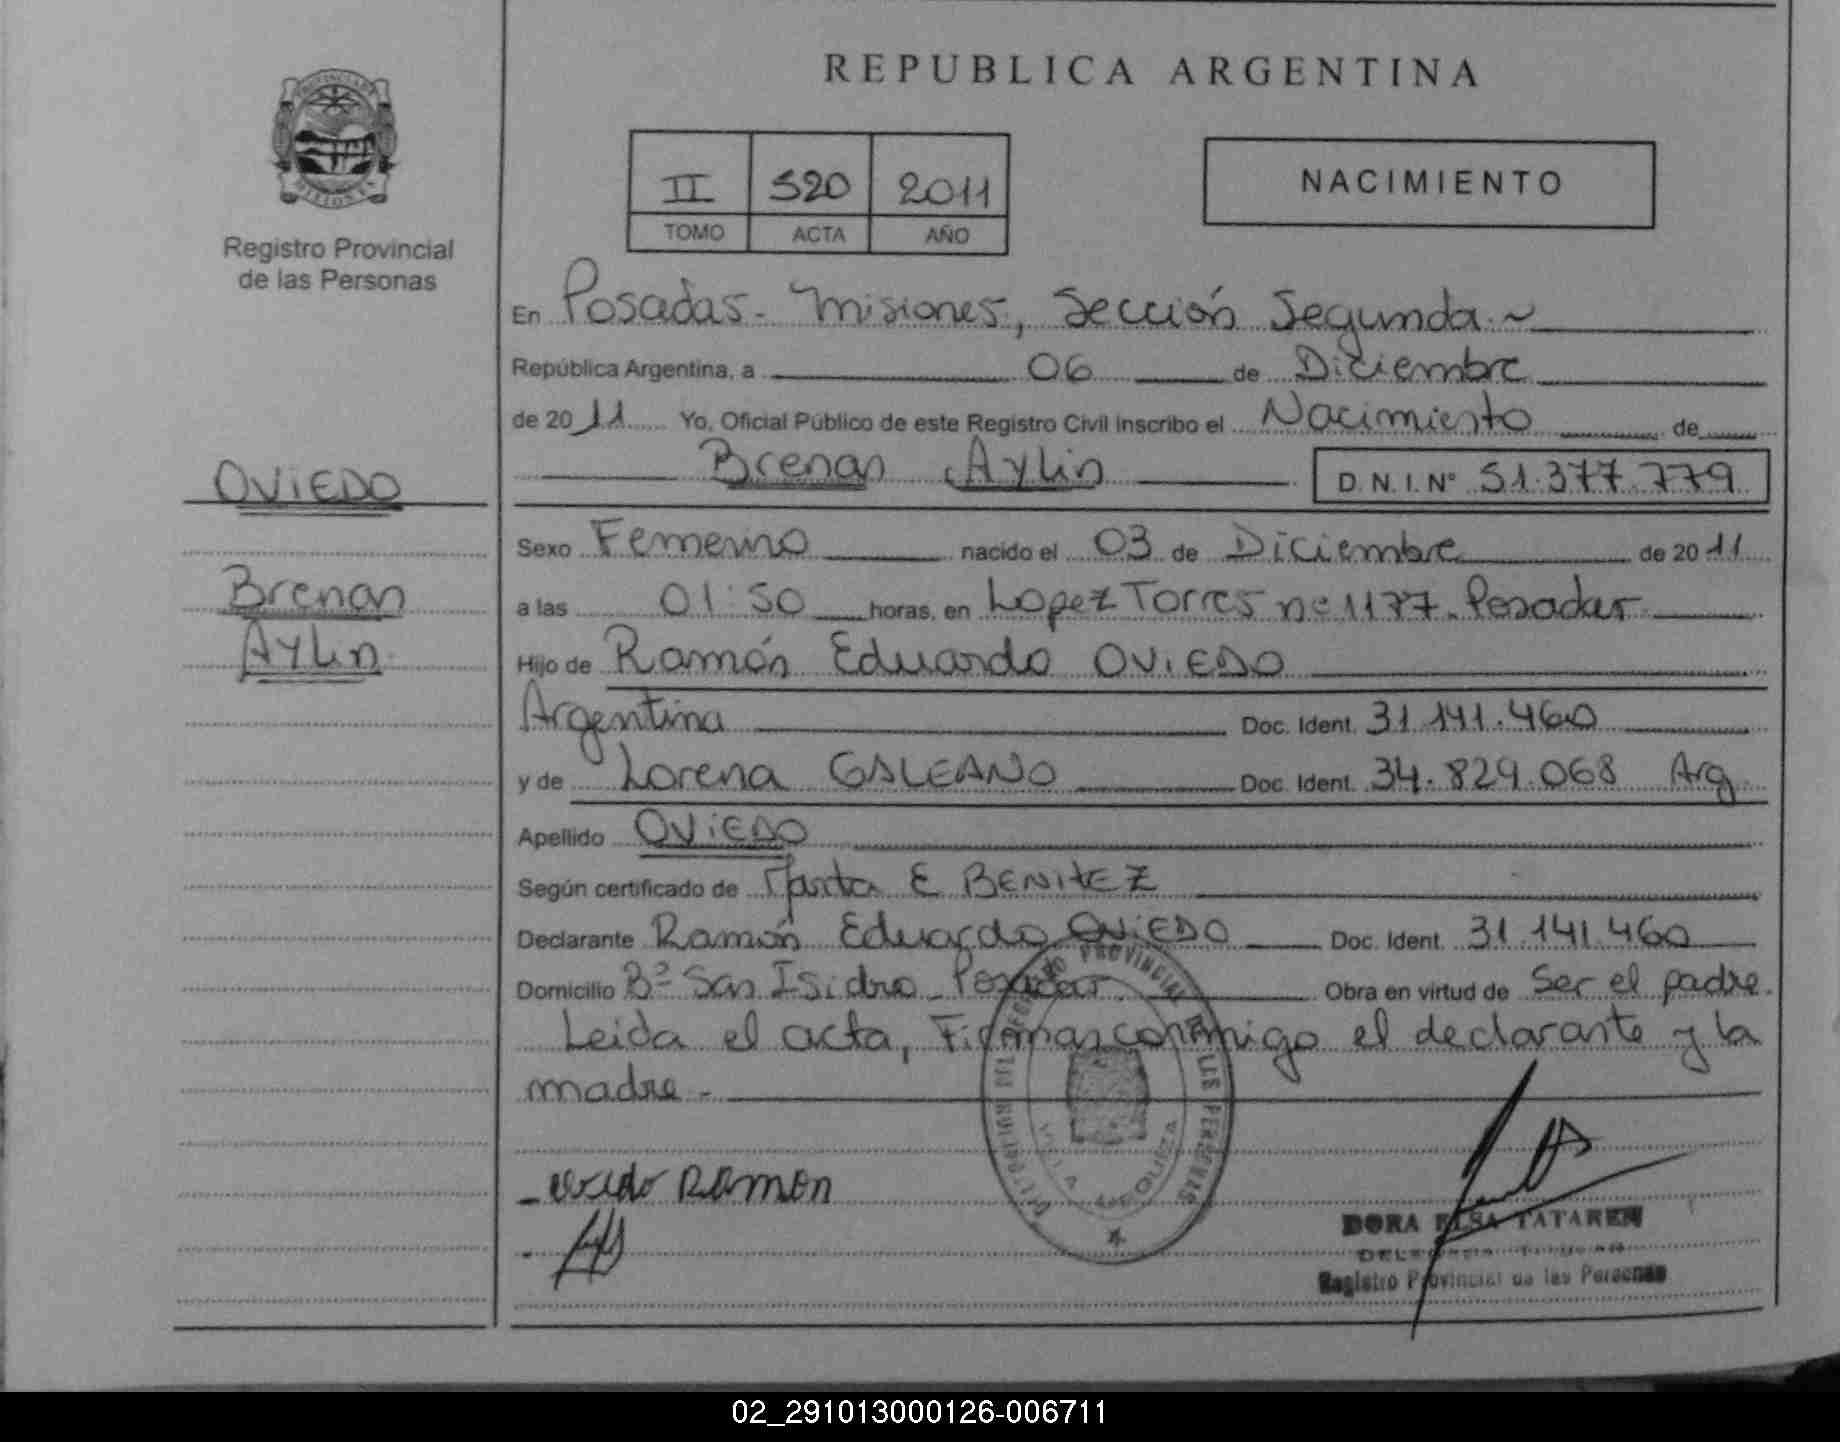 REPUBLICA ARGENTINA
PROVINCIA DE MISIONES
Registro Provincial
de las Personas
II 520 2011
TOMO ACTA AÑO
NACIMIENTO
En Posadas - Misiones, Sección Segunda
República Argentina, a 06 de Diciembre
de 2011 Yo, Oficial Público de este Registro Civil inscribo el Nacimiento de
Brenan Aylin D.N.I. Nº 51.377.779
OVIEDO
Brenan
Aylin
Sexo Femenino nacido el 03 de Diciembre de 2011
a las 01:50 horas, en Lopez Torres nº 1177 - Posadas
Hijo de Ramón Eduardo OVIEDO
Argentina Doc. Ident. 31.141.460
y de Lorena GALEANO Doc. Ident. 34.829.068 Arg.
Apellido OVIEDO
Según certificado de Marta E BENITEZ
Declarante Ramón Eduardo OVIEDO Doc. Ident. 31.141.460
Domicilio Bº San Isidro - Posadas Obra en virtud de Ser el padre.
Leida el acta, Firman conmigo el declarante y la
madre.-
REGISTRO PROVINCIAL DE LAS PERSONAS
- oviedo Ramon
DORA ELSA TATAREN
Registro Provincial de las Personas
02_291013000126-006711